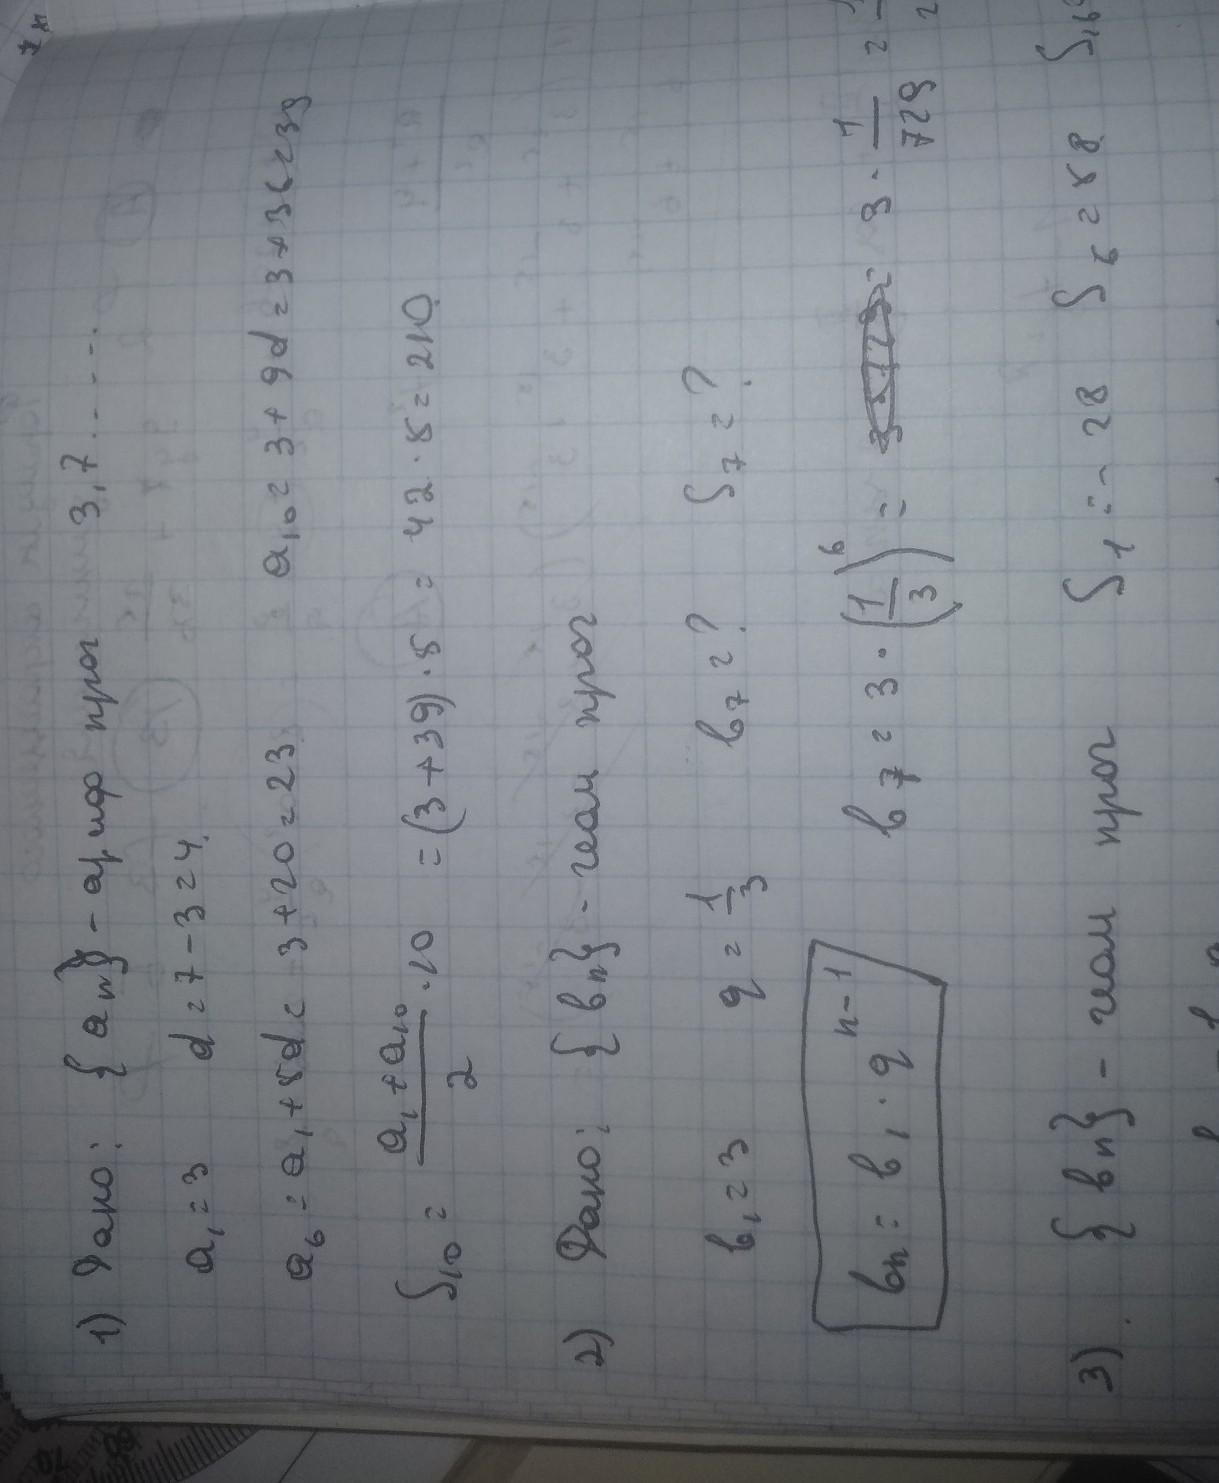 1) Дано: {an} - ариф прог 3,7.......
a₁ = 3 d = 7 - 3 = 4.
a₆ = a₁ + 5d = 3 + 20 = 23 a₁₀ = 3 + 9d = 3 + 36 = 39
S₁₀ = (a₁ + a₁₀)/2 · 10 = (3 + 39) · 5 = 42 · 5 = 210.
2) Дано: {bn} - геом прог
b₁ = 3 q = 1/3 b₇ = ? S₇ = ?
bn = b₁ · q^(n-1) b₇ = 3 · (1/3)^6 = = 3 · 1/729 =
3). {bn} - геом прог S₁ = - 28 S₆ = 58